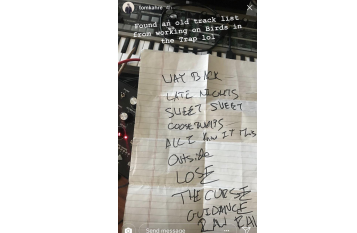 tomkahre
Found an old track list
from working on Birds in
the Trap lol
WAY BACK
LATE NIGHTS
SWEET SWEET
GOOSEBUMPS
ALL I
Outside
LOSE
THE CURSE
GUIDANCE
Send message